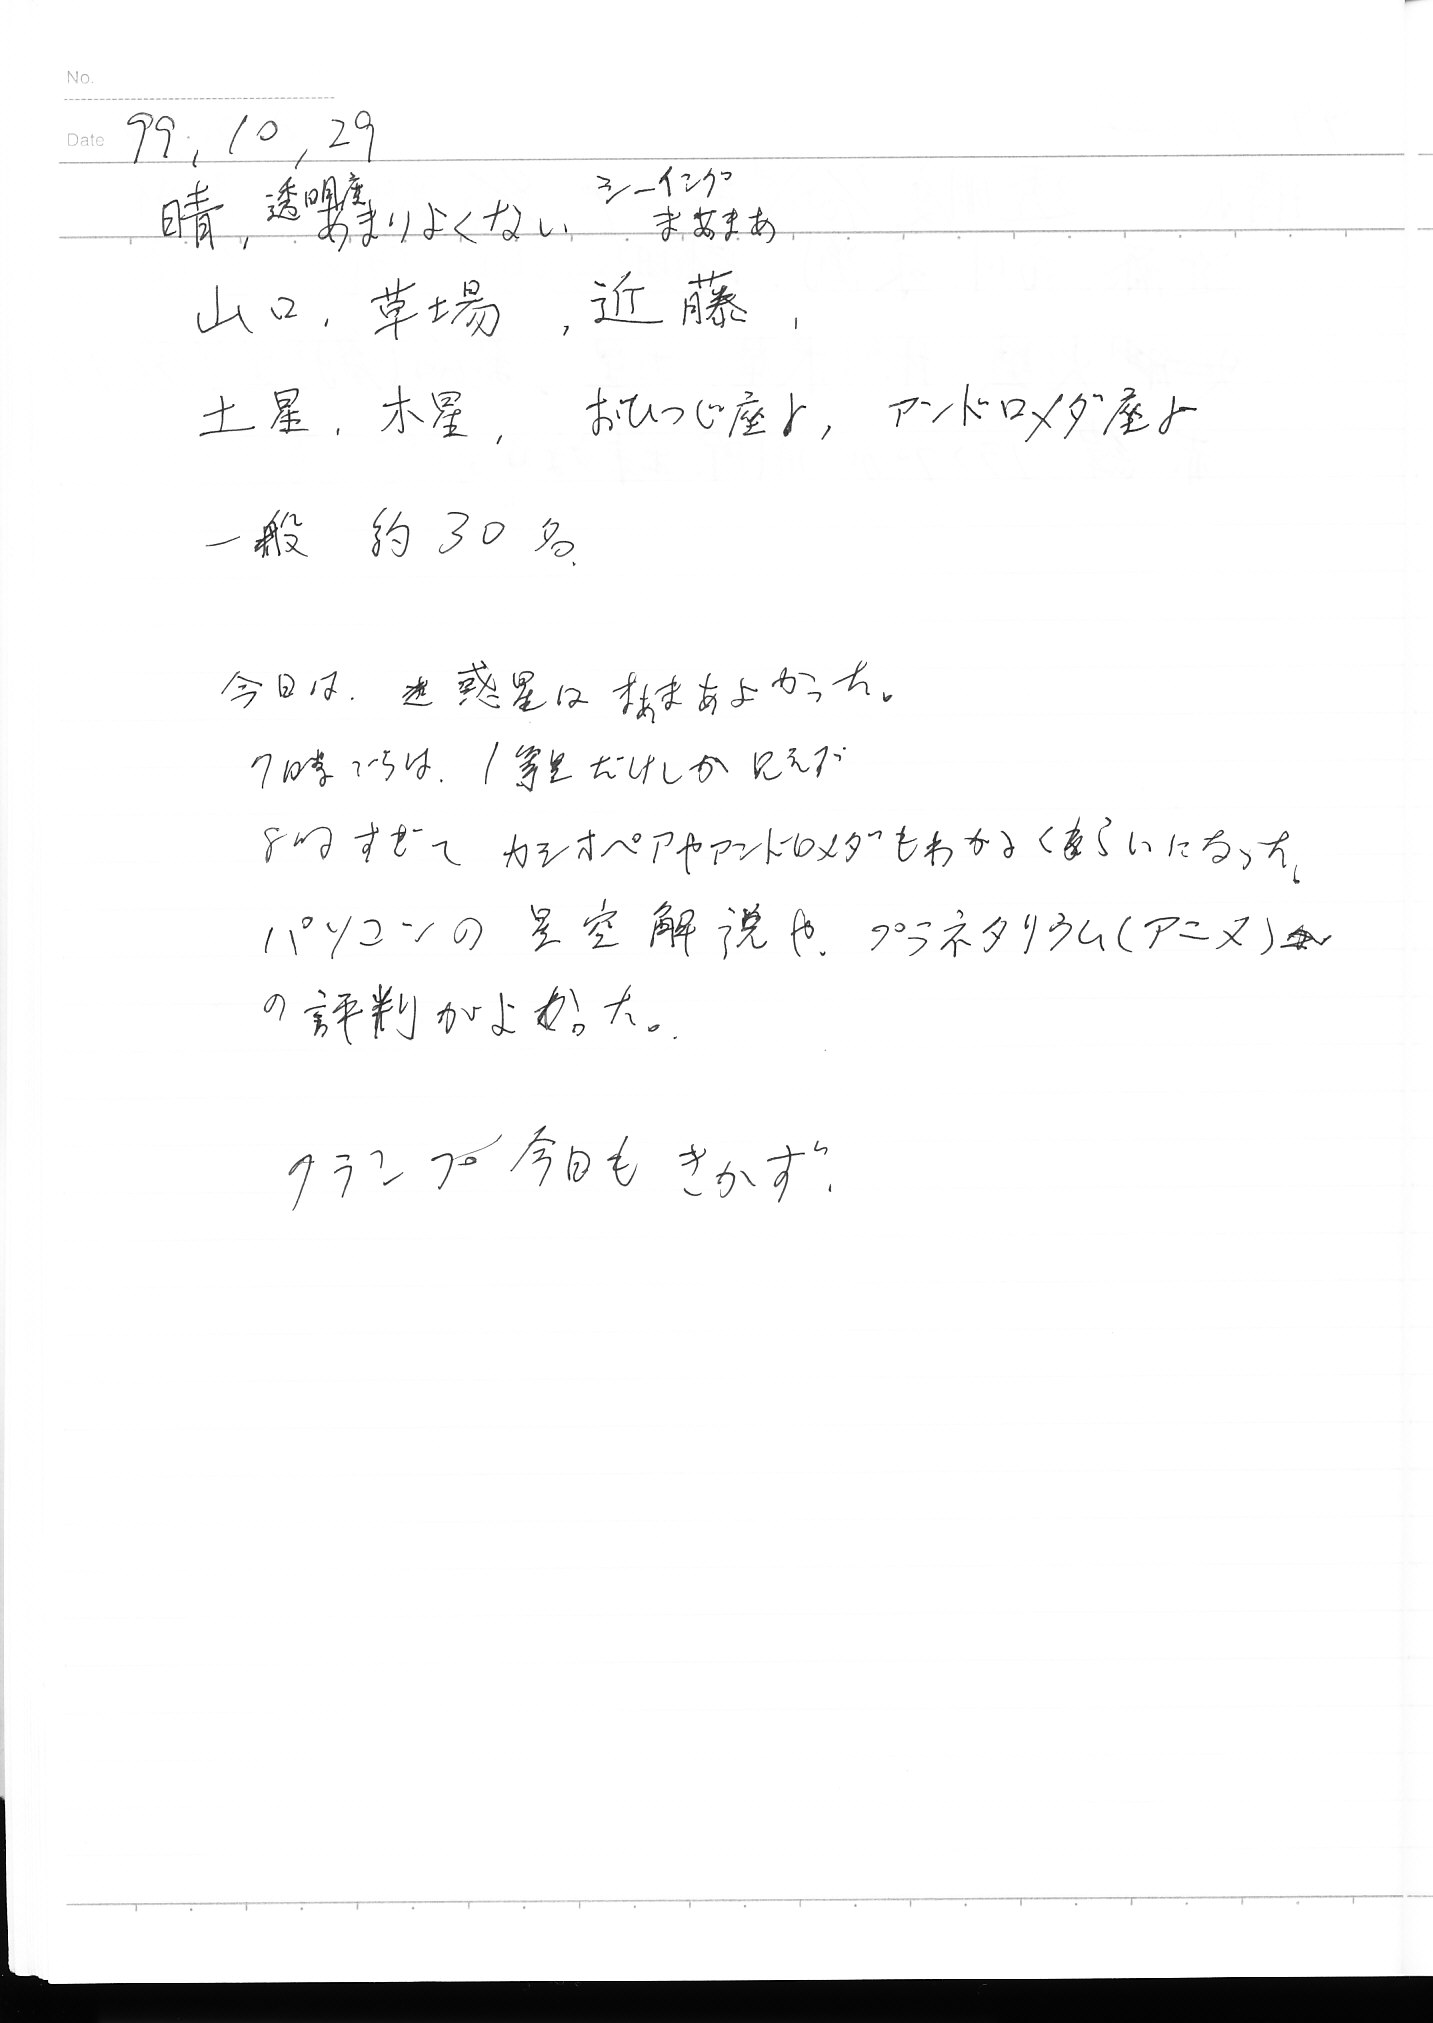 No.
Date 99, 10, 29
晴, 透明度あまりよくない シーイングまあまあ
山口, 草場, 近藤,
土星, 木星, おひつじ座γ, アンドロメダ座γ
一般 約30名.
今日は. 惑星はまあまあよかった。
7時ごろは. 1等星だけしか見えず
8時すぎて カシオペアやアンドロメダもわかるくらいになった。
パソコンの 星空解説や. プラネタリウム(アニメ)
の評判がよかった。
クランプ今日も きかず.